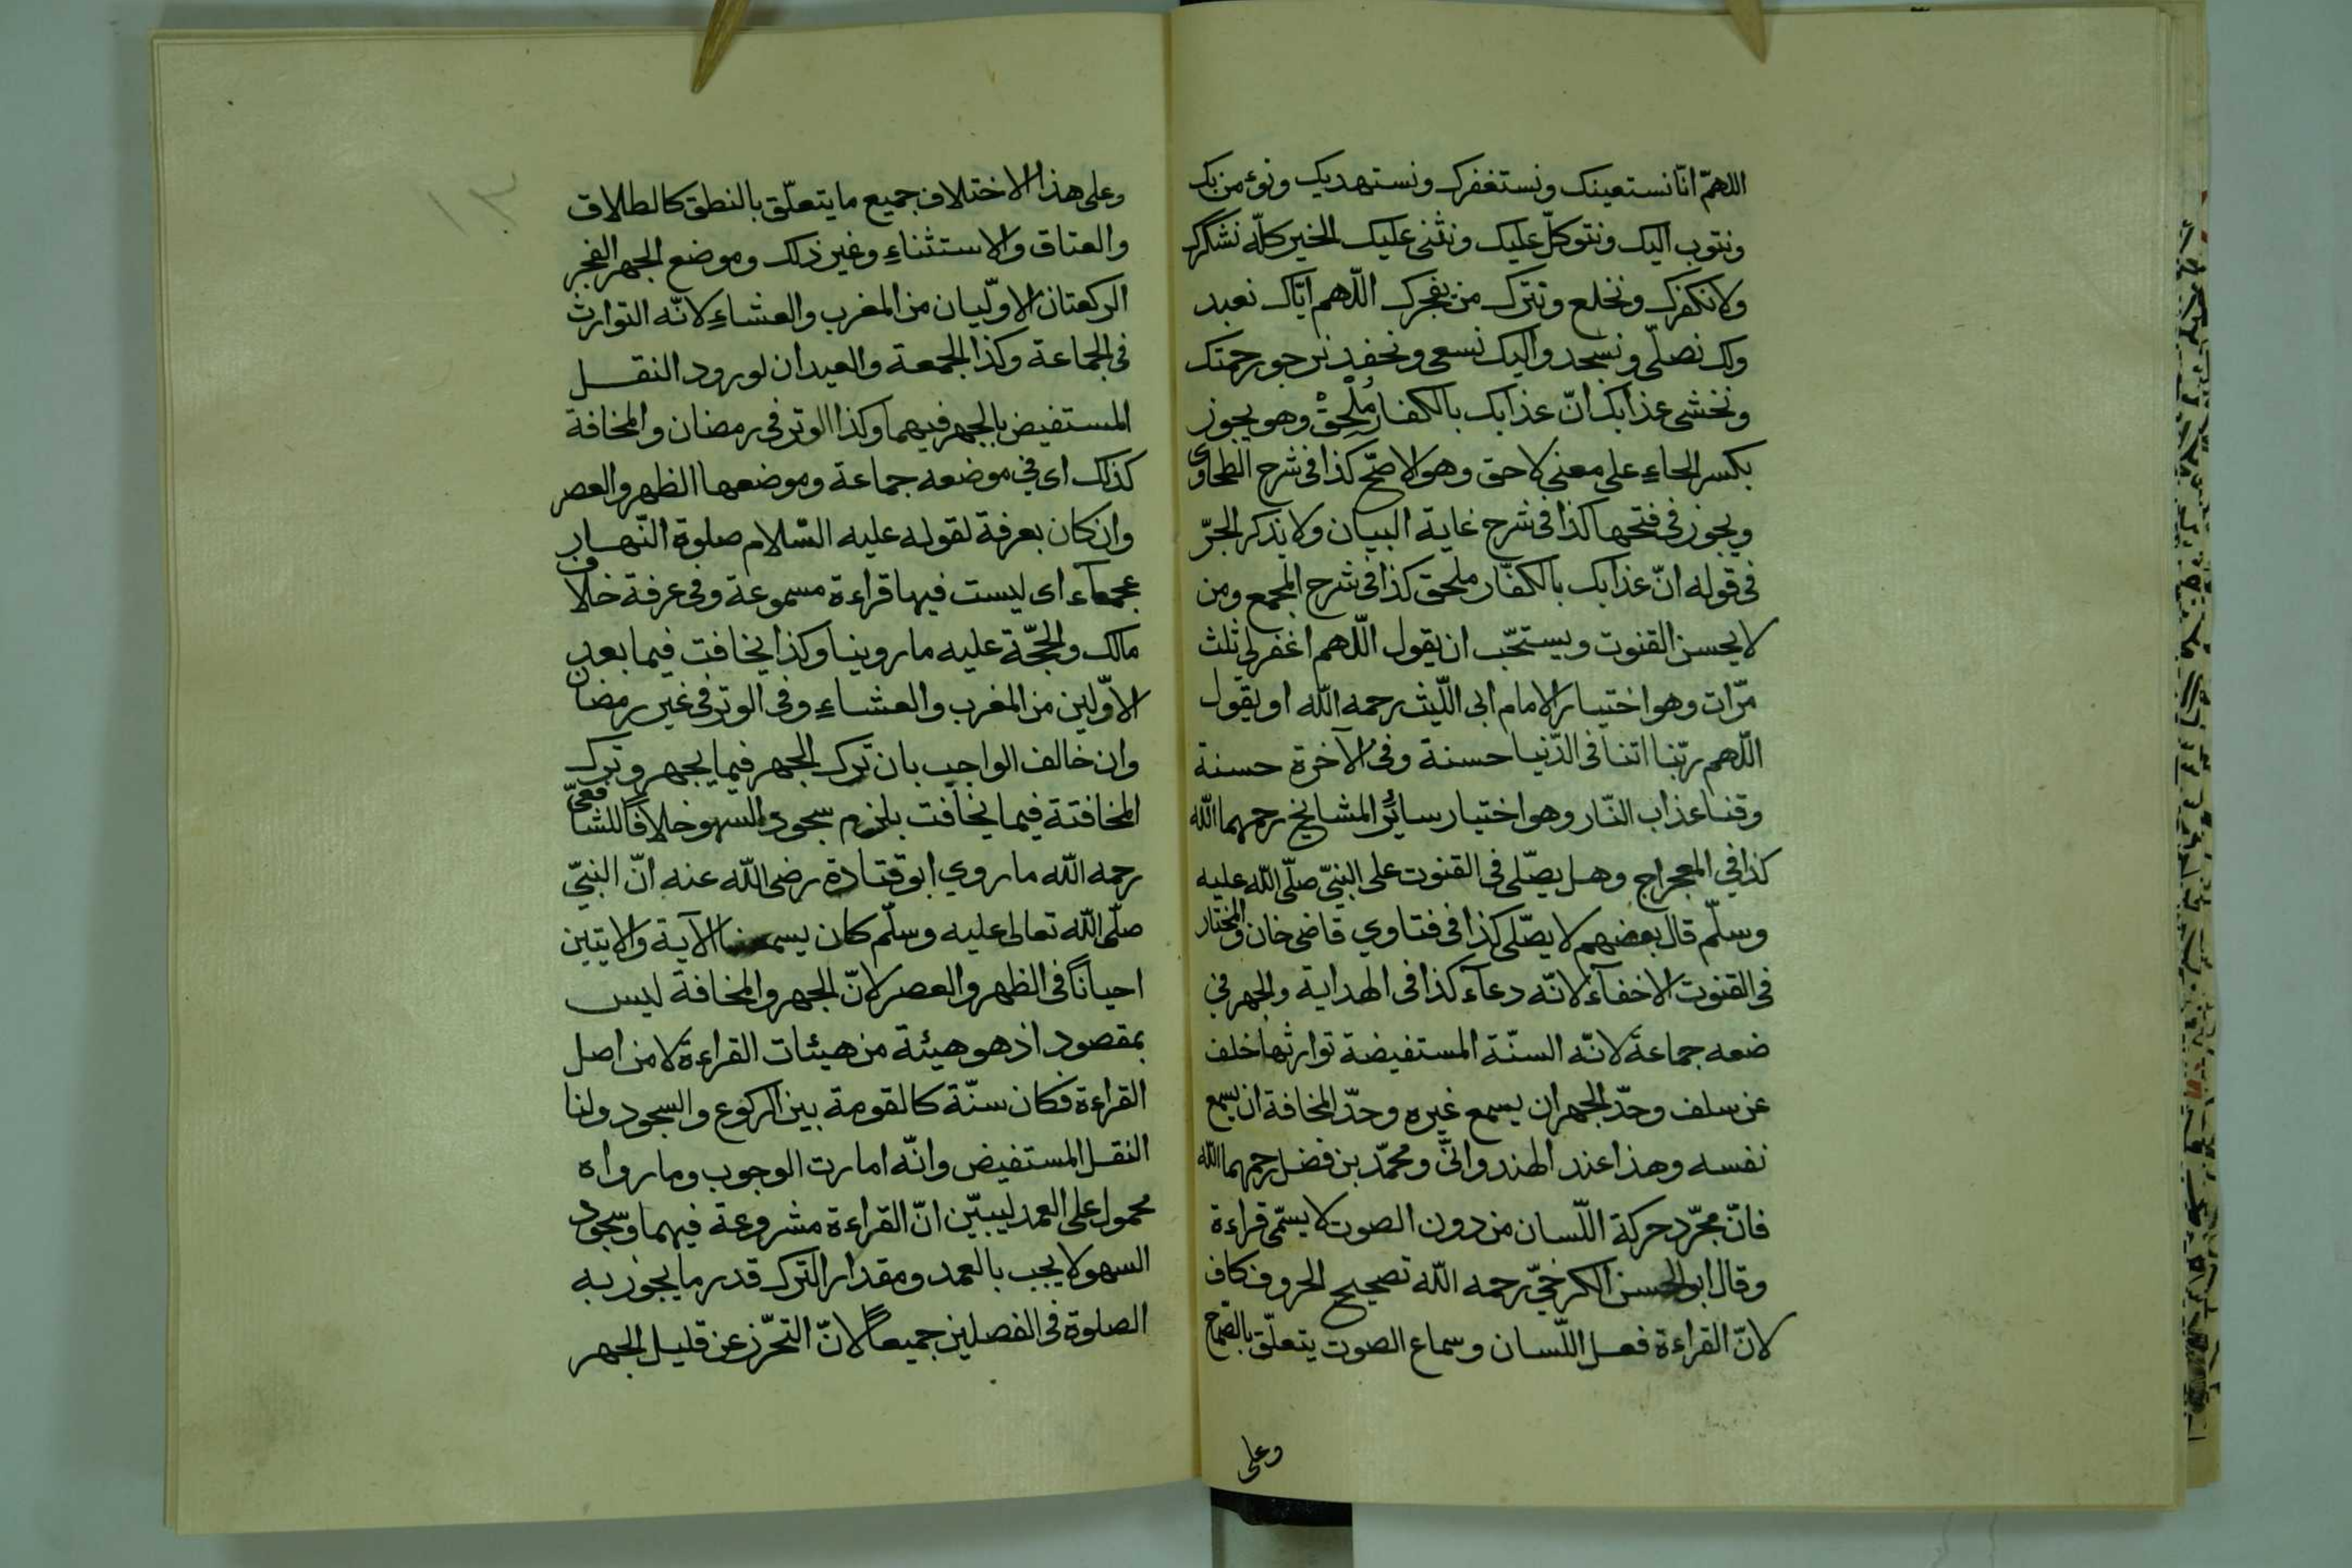 اللهمّ انّا نستعينك ونستغفرك ونستهديك ونؤمن بك
ونتوب اليك ونتوكلّ عليك ونثنى عليك الخير كلّه نشكرك
ولا نكفرك ونخلع ونترك من يفجرك اللّهم ايّاك نعبد
ولك نصلّى ونسجد واليك نسعى ونحفد نرجو رحمتك
ونخشى عذابك انّ عذابك بالكفار مُلْحِقْ وهو يجوز
بكسر الحاءِ على معنى لاحق وهو الاصّح كذا فى شرح الطحاوى
ويجوز فى فتحها كذا فى شرح غاية البيان ولا يذكر الجرّ
فى قوله انّ عذابك بالكفّار ملحق كذا فى شرح المجمع ومن
لا يحسن القنوت ويستحّب ان يقول اللّهم اغفر لى ثلث
مرّات وهو اختيار الامام ابى اللّيث رحمه اللّه او يقول
اللّهم ربّنا اتنا فى الدّنيا حسنة وفى الآخرة حسنة
وقنا عذاب النّار وهو اختيار سائر المشايخ رحمهما اللّه
كذا في المعجراج وهل يصّلى فى القنوت على النبىّ صلّى اللّه عليه
وسلّم قال بعضهم لا يصّلى كذا فى فتاوي قاضى خان والمختار
فى القنوت الاخفآء لانّه دعآء كذا فى الهداية والجهر في
ضعه جماعة لانّه السنّة المستفيضة توارثها خلف
عن سلف وحدّ الجهر ان يسمع غيره وحدّ المخافة ان يسمع
نفسه وهذا عند الهندوانىّ ومحمّد بن فضل رحمهما اللّه
فانّ مجرّد حركة اللّسان من دون الصوت لا يسّمى قراءة
وقال ابو الحسن الكرخىّ رحمه اللّه تصحيح الحروف كاف
لانّ القراءة فعل اللّسان وسماع الصوت يتعلّق بالصّماخ
وعلى
١٣
وعلى هذا الاختلاف جميع ما يتعلّق بالنطق كالطلاق
والعتاق والاستثناءِ وغير ذلك وموضع الجهر الفجر
الركعتان الاوّليان من المغرب والعشاءِ لانّه التوارث
فى الجماعة وكذا الجمعة والعيدان لورود النقل
المستفيض بالجهر فيهما وكذا الوتر فى رمضان والمخافة
كذلك اى في موضعه جماعة وموضعها الظهر والعصر
وان كان بعرفة لقوله عليه السّلام صلوة النّهار
عجمآء اى ليست فيها قراءة مسموعة وفى عرفة خلاف
مالك والحجّة عليه ما روينا وكذا يخافت فيما بعد
الاوّلين من المغرب والعشاءِ وفى الوتر فى غير رمضان
وان خالف الواجب بان ترك الجهر فيما يجهر وترك
المخافتة فيما يخافت يلزم سجود السهو خلافًا للشافعىّ
رحمه اللّه ما روي ابو قتادة رضى اللّه عنه انّ النبىّ
صلّى اللّه تعالى عليه وسلّم كان يسمعنا الآية والايتين
احيانًا فى الظهر والعصر لانّ الجهر والمخافة ليس
بمقصود اذ هو هيئة من هيئات القراءة لا من اصل
القراءة فكان سنّة كالقومة بين الركوع والسجود ولنا
النقل المستفيض وانّه امارت الوجوب وما رواه
محمول على العمد ليبيّن انّ القراءة مشروعة فيهما وسجود
السهو لا يجب بالعمد ومقدار الترك قدر ما يجوز به
الصلوة فى الفصلين جميعًا لانّ التحرّز عن قليل الجهر